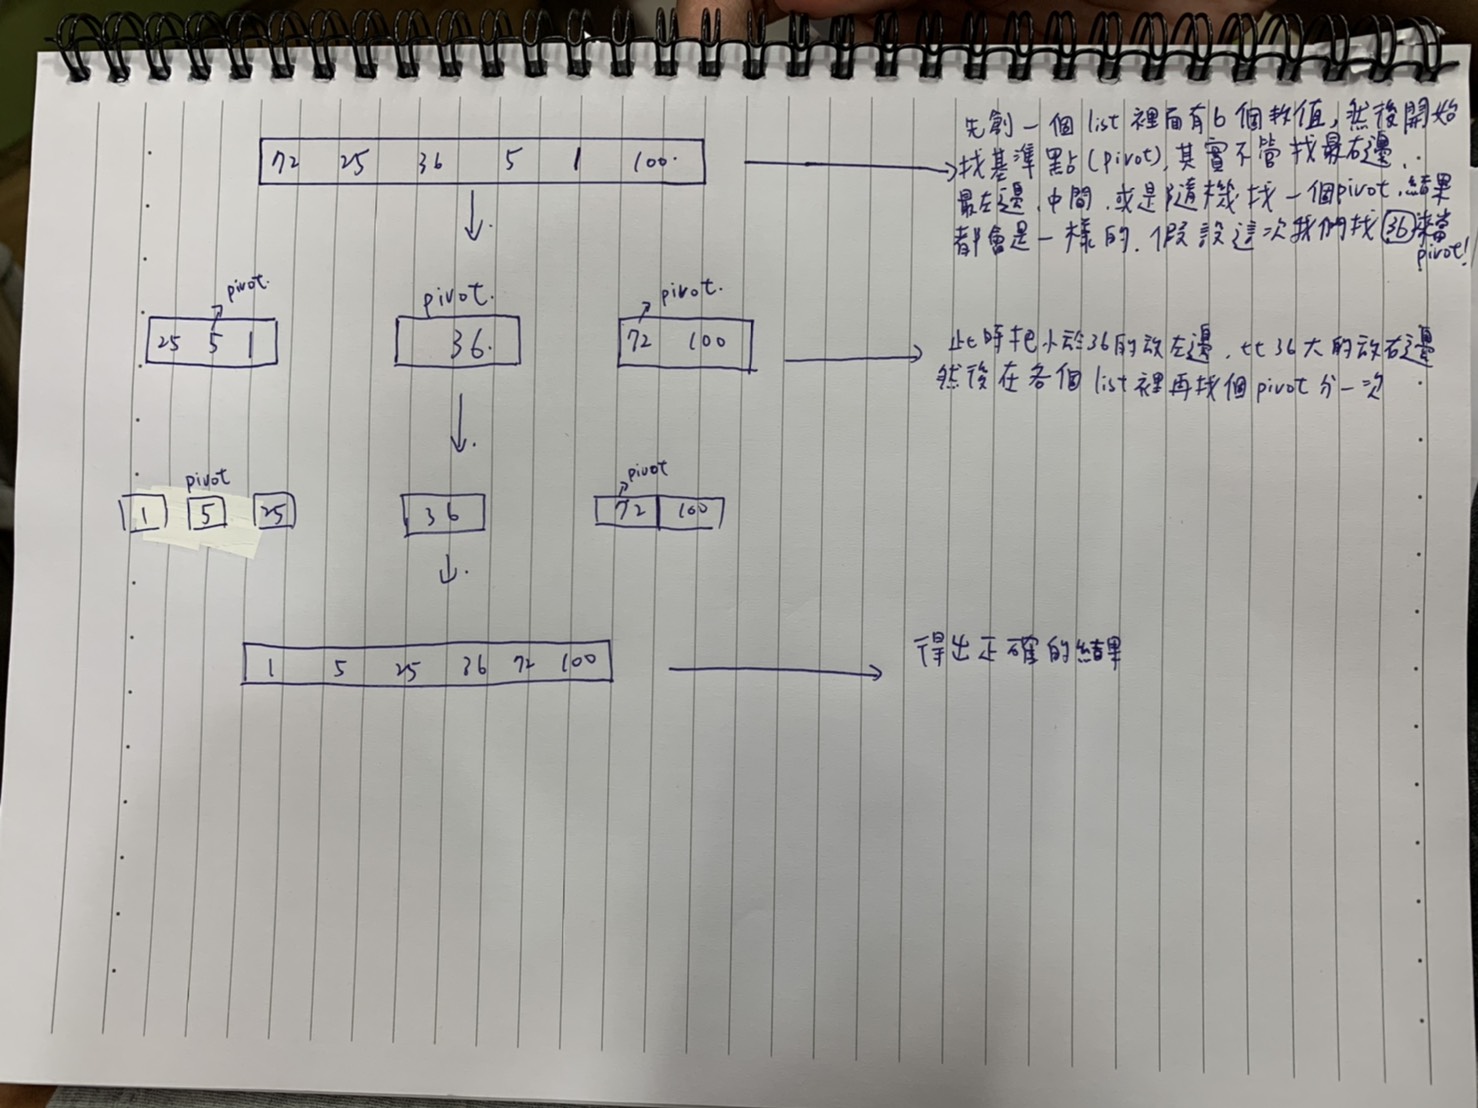 72 25 36 5 1 100.
先創一個 list 裡面有6個數值,然後開始
找基準點(pivot),其實不管找最右邊、
最左邊、中間、或是隨機找一個pivot,結果
都會是一樣的、假設這次我們找36來當
pivot!
pivot.
pivot.
pivot.
25 5 1
36.
72 100
此時把小於36的放左邊、比36大的放右邊
然後在各個list裡再找個pivot分一次
pivot
pivot
1 5 25
36
72 100
1 5 25 36 72 100
得出正確的結果